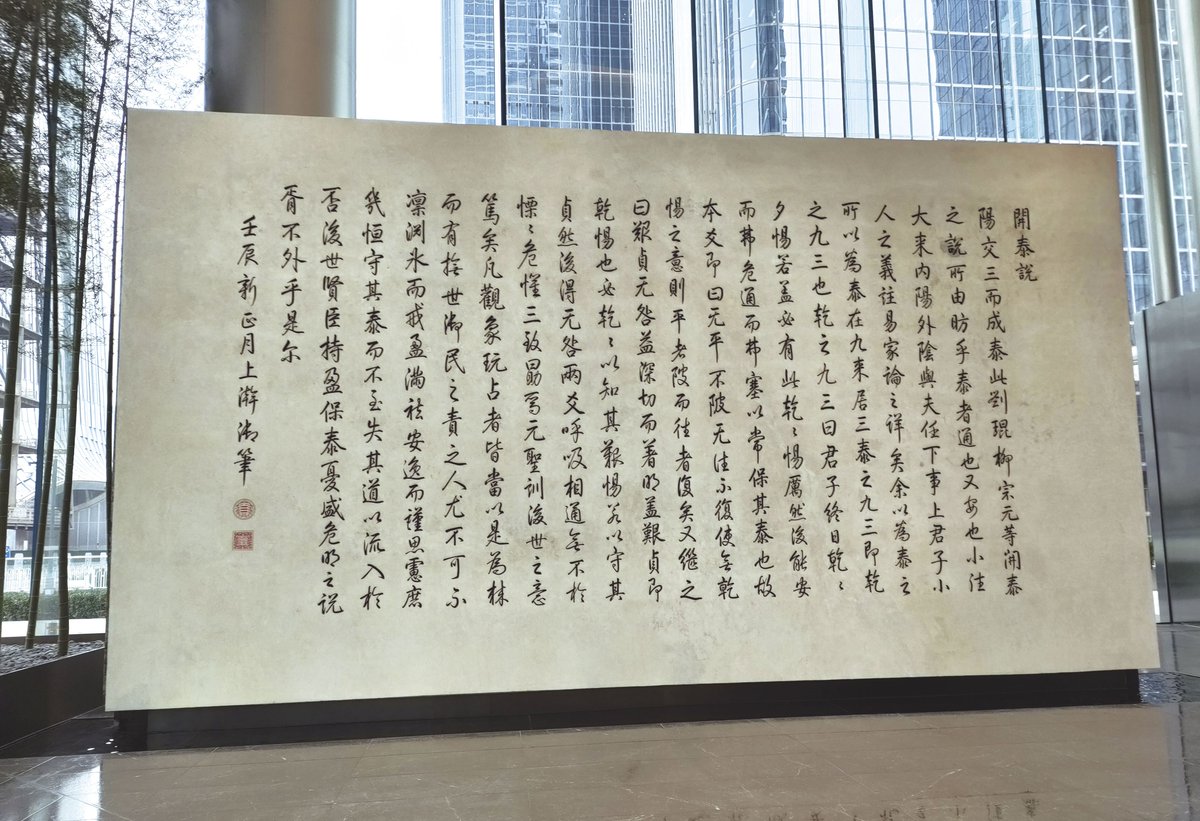 開泰說
陽交三而成泰此劉琨柳宗元等開泰
之說所由昉乎泰者通也又安也小往
大来内陽外陰與夫任下事上君子小
人之義註易家論之详矣余以為泰之
所以為泰在九来居三泰之九三即乾
之九三也乾之九三曰君子終日乾〻
夕惕若盖必有此乾〻惕厲然後能安
而弗危通而弗塞以常保其泰也故
本爻即曰无平不陂无往不復使無乾
惕之意則平者陂而往者復矣又繼之
曰艱貞无咎益深切而著明盖艱貞即
乾惕也必乾〻以知其艱惕若以守其
貞然後得无咎兩爻呼吸相通無不於
慄〻危懼三致勗焉元聖訓後世之意
篤矣凡觀象玩占者皆當以是為
而有撫世御民之責之人尤不可不
凛淵氷而戒盈滿祛安逸而謹思慮庶
幾恒守其泰而不至失其道以流入於
否後世賢臣持盈保泰憂盛危明之説
胥不外乎是尔
壬辰新正月上澣御筆